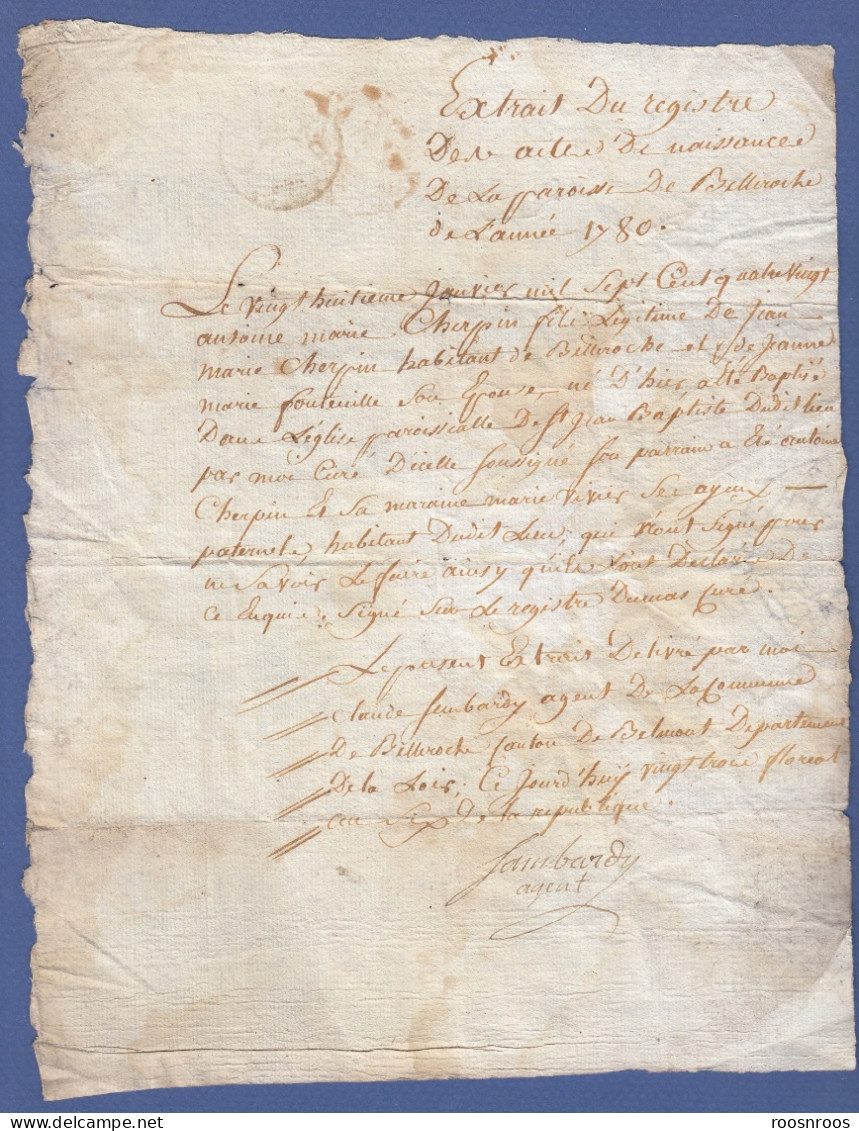 Extrait Du registre
Des actes De naissance
De La paroisse De Belleroche
de L'année 1780.
Le vingt huitieme janvier mil Sept Cent quatre vingt
antoine marie Cherpin fils Légitime De jean
marie Cherpin habitant de Belleroche et de jeanne
marie fouteuille Son Epouse, né D'hier a été Baptisé
Dans L'église paroissialle De St jean Baptiste Dudit lieu
par moi Curé D'icelle Soussigné Son parrain a été antoine
Cherpin Et Sa maraine marie vivier Ses ayeux
paternels, habitant Dudit Lieu, qui n'ont Signé pour
ne Savoir Le faire ainsy qu'ils L'ont Declaré De
ce Enquis. Signé Sur Le registre Dumas Curé.
Le present Extrait Delivré par moi
Claude Sambardy agent De La Commune
De Belleroche Canton De Belmont Departement
De la Loire, Ce jourd'huy vingt trois floreal
an Six de la republique.
Sambardy
agent
roosnroos